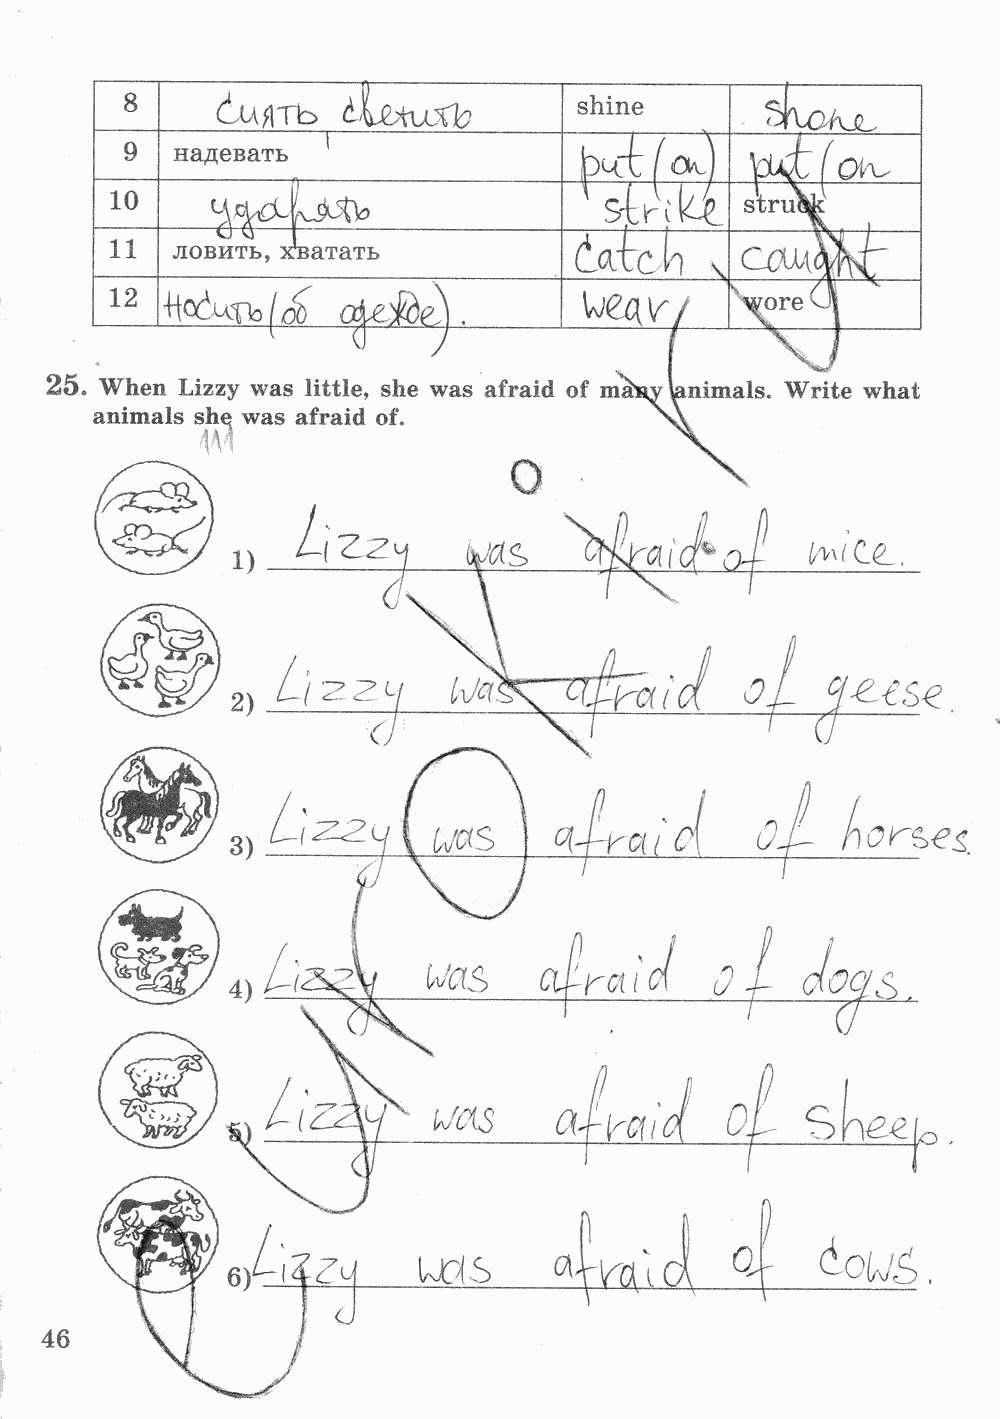 8 сиять светить shine shone
9 надевать put (on) put (on
10 ударять strike struck
11 ловить, хватать catch caught
12 носить (об одежде). wear wore
25. When Lizzy was little, she was afraid of many animals. Write what
animals she was afraid of.
1) Lizzy was afraid of mice.
2) Lizzy was afraid of geese.
3) Lizzy was afraid of horses.
4) Lizzy was afraid of dogs.
5) Lizzy was afraid of sheep.
6) Lizzy was afraid of cows.
46